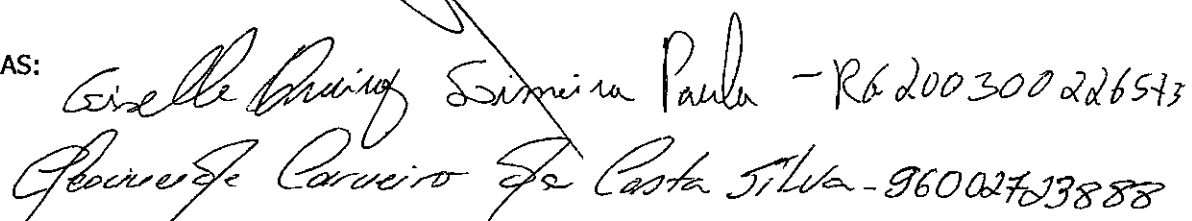 AS: Giselle Queiroz Simeira Paula - RG 200300226573
Carneiro da Costa Silva - 96002723888